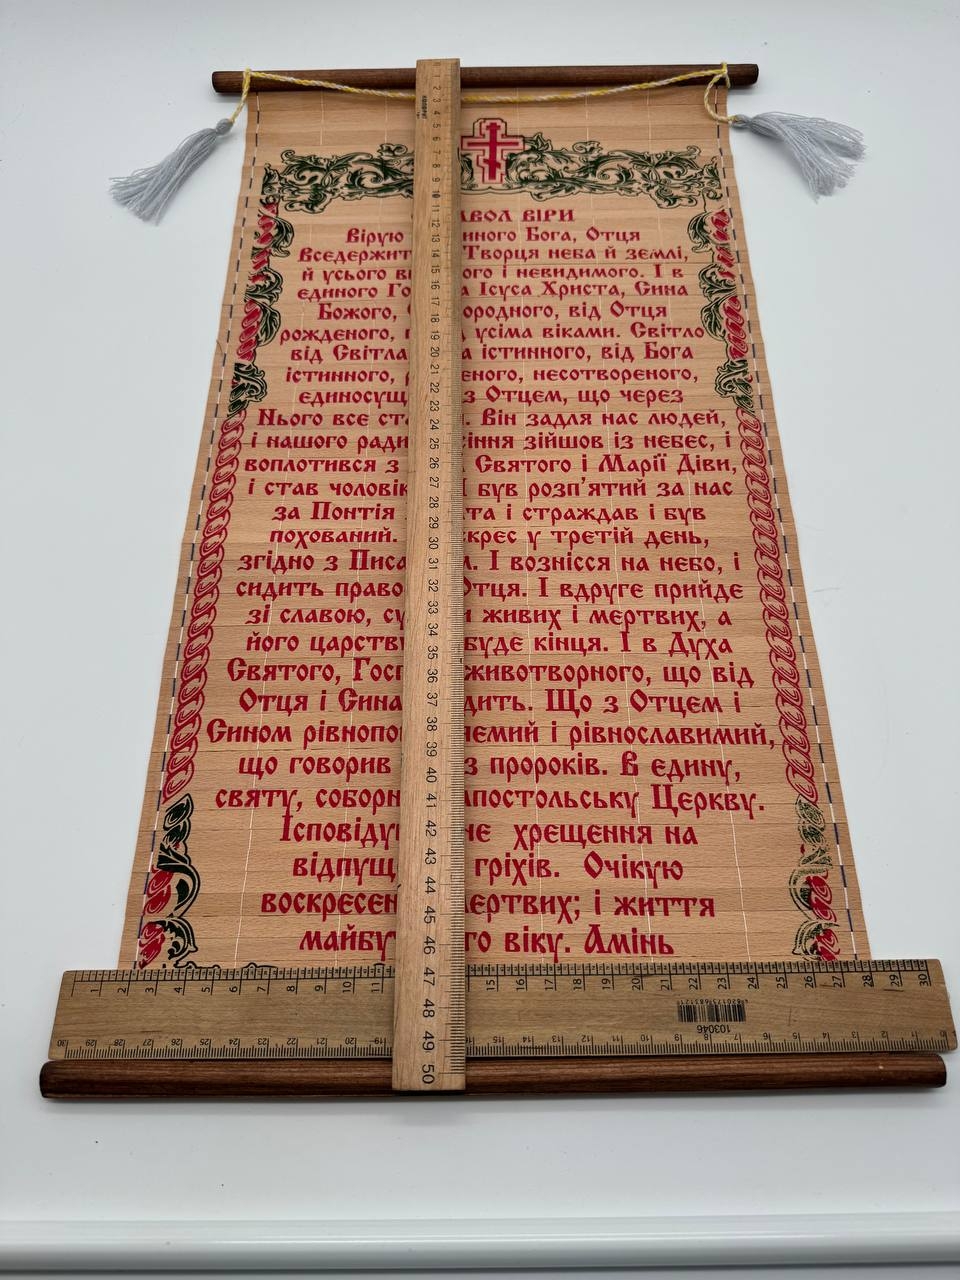 АВОЛ ВІРИ
Вірую иного Бога, Отця
Вседержит Творця неба й землі,
й усього ви ого і невидимого. І в
єдиного Го а Ісуса Христа, Сина
Божого, ородного, від Отця
рожденого, усіма віками. Світло
від Світла а істинного, від Бога
істинного, еного, несотвореного,
єдиносущ з Отцем, що через
Нього все ста . Він задля нас людей,
і нашого ради сіння зійшов із небес, і
воплотився з Святого і Марії Діви,
і став чоловік І був розп'ятий за нас
за Понтія та і страждав і був
похований. скрес у третій день,
згідно з Писа м. І вознісся на небо, і
сидить право Отця. І вдруге прийде
зі славою, су и живих і мертвих, а
його царству буде кінця. І в Духа
Святого, Госп животворного, що від
Отця і Сина дить. Що з Отцем і
Сином рівнопо няємий і рівнославимий,
що говорив з пророків. В єдину,
святу, соборн апостольську Церкву.
Ісповіду не хрещення на
відпущ гріхів. Очікую
воскресен мертвих; і життя
майбу го віку. Амінь
1 2 3 4 5 6 7 8 9 10 11 12 13 14 15 16 17 18 19 20 21 22 23 24 25 26 27 28 29 30 31 32 33 34 35 36 37 38 39 40 41 42 43 44 45 46 47 48 49 50
1 2 3 4 5 6 7 8 9 10 11 15 16 17 18 19 20 21 22 23 24 25 26 27 28 29 30
103046
30 29 28 27 26 25 24 23 22 21 20 19 15 14 13 12 11 10 9 8 7 6 5 4 3 2 1 0